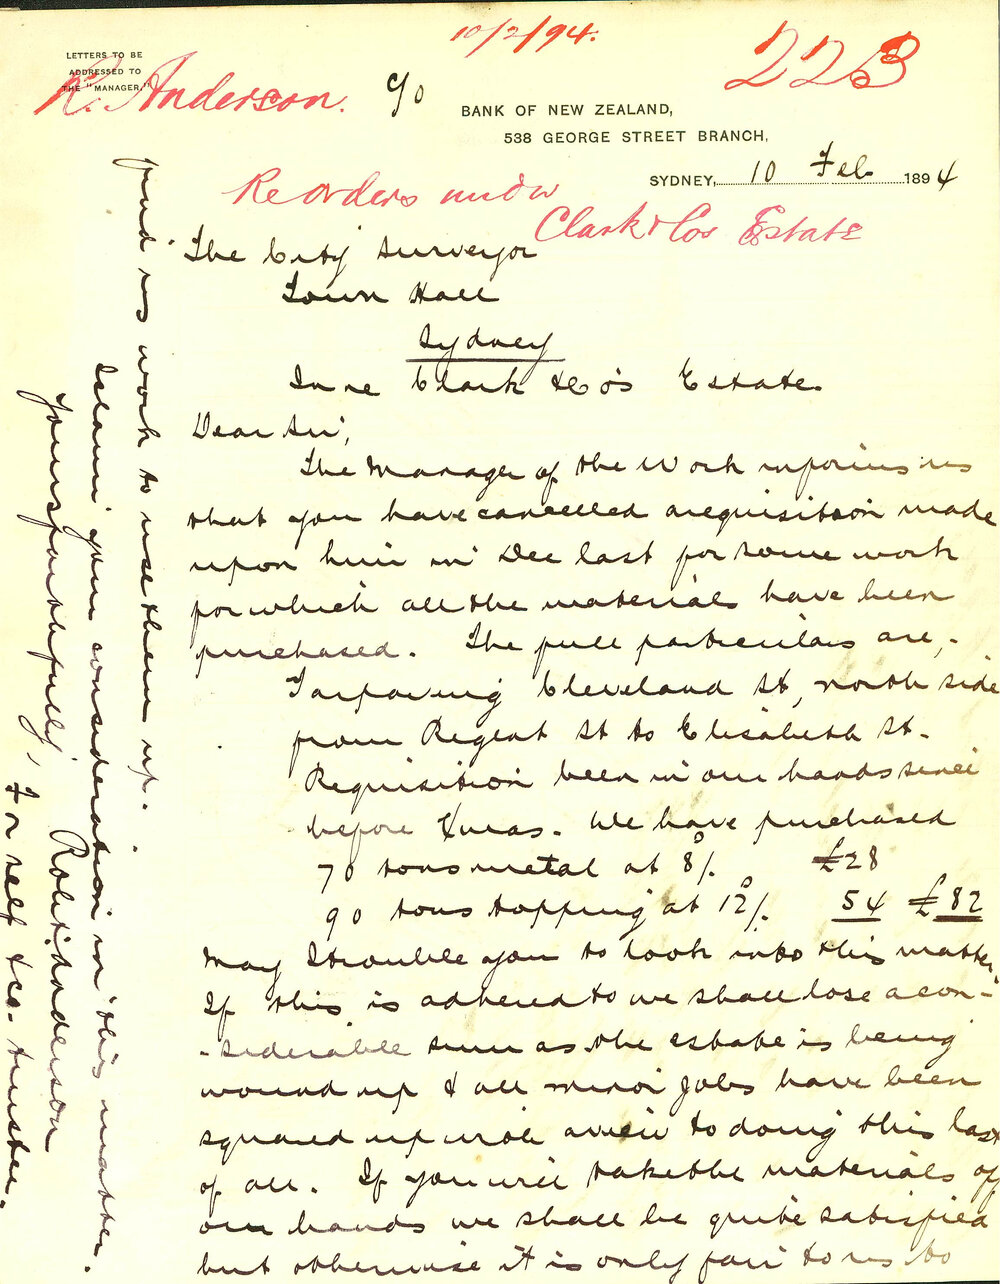 10/2/94.
223
LETTERS TO BE
ADDRESSED TO
THE "MANAGER,"
R. Anderson.
C/o
BANK OF NEW ZEALAND,
538 GEORGE STREET BRANCH,
SYDNEY, 10 Feb 1894
Re orders under
Clark & Cos Estate
The City Surveyor
Town Hall
Sydney
In re Clark & Co's Estate
Dear Sir,
The Manager of the Work informs us
that you have cancelled a requisition made
upon him in Dec last for some work
for which all the material have been
purchased. The full particulars are,-
Tarpaving Cleveland St, north side
from Regent St to Elizabeth St.
Requisition been in our hands since
before Xmas. We have purchased
70 tons metal at 8/. £28
90 tons topping at 12/. 54 £82
May I trouble you to look into this matter.
If this is adhered to we shall lose a con-
-siderable sum as the estate is being
wound up & all minor jobs have been
squared up with a view to doing this last
of all. If you will take the materials off
our hands we shall be quite satisfied
but otherwise it is only fair to us to
find us work to use them up.
your consideration in this matter.
Yours faithfully,
Robt Anderson
For self & co-trustee.